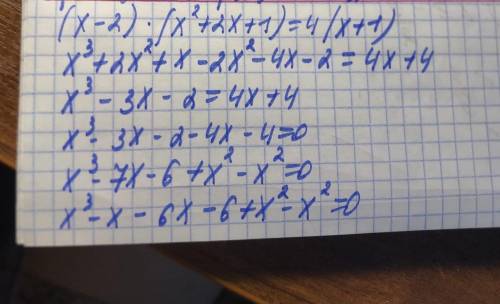 (x-2)·(x²+2x+1)=4(x+1)
x³+2x²+x-2x²-4x-2=4x+4
x³-3x-2=4x+4
x³-3x-2-4x-4=0
x³-7x-6+x²-x²=0
x³-x-6x-6+x²-x²=0